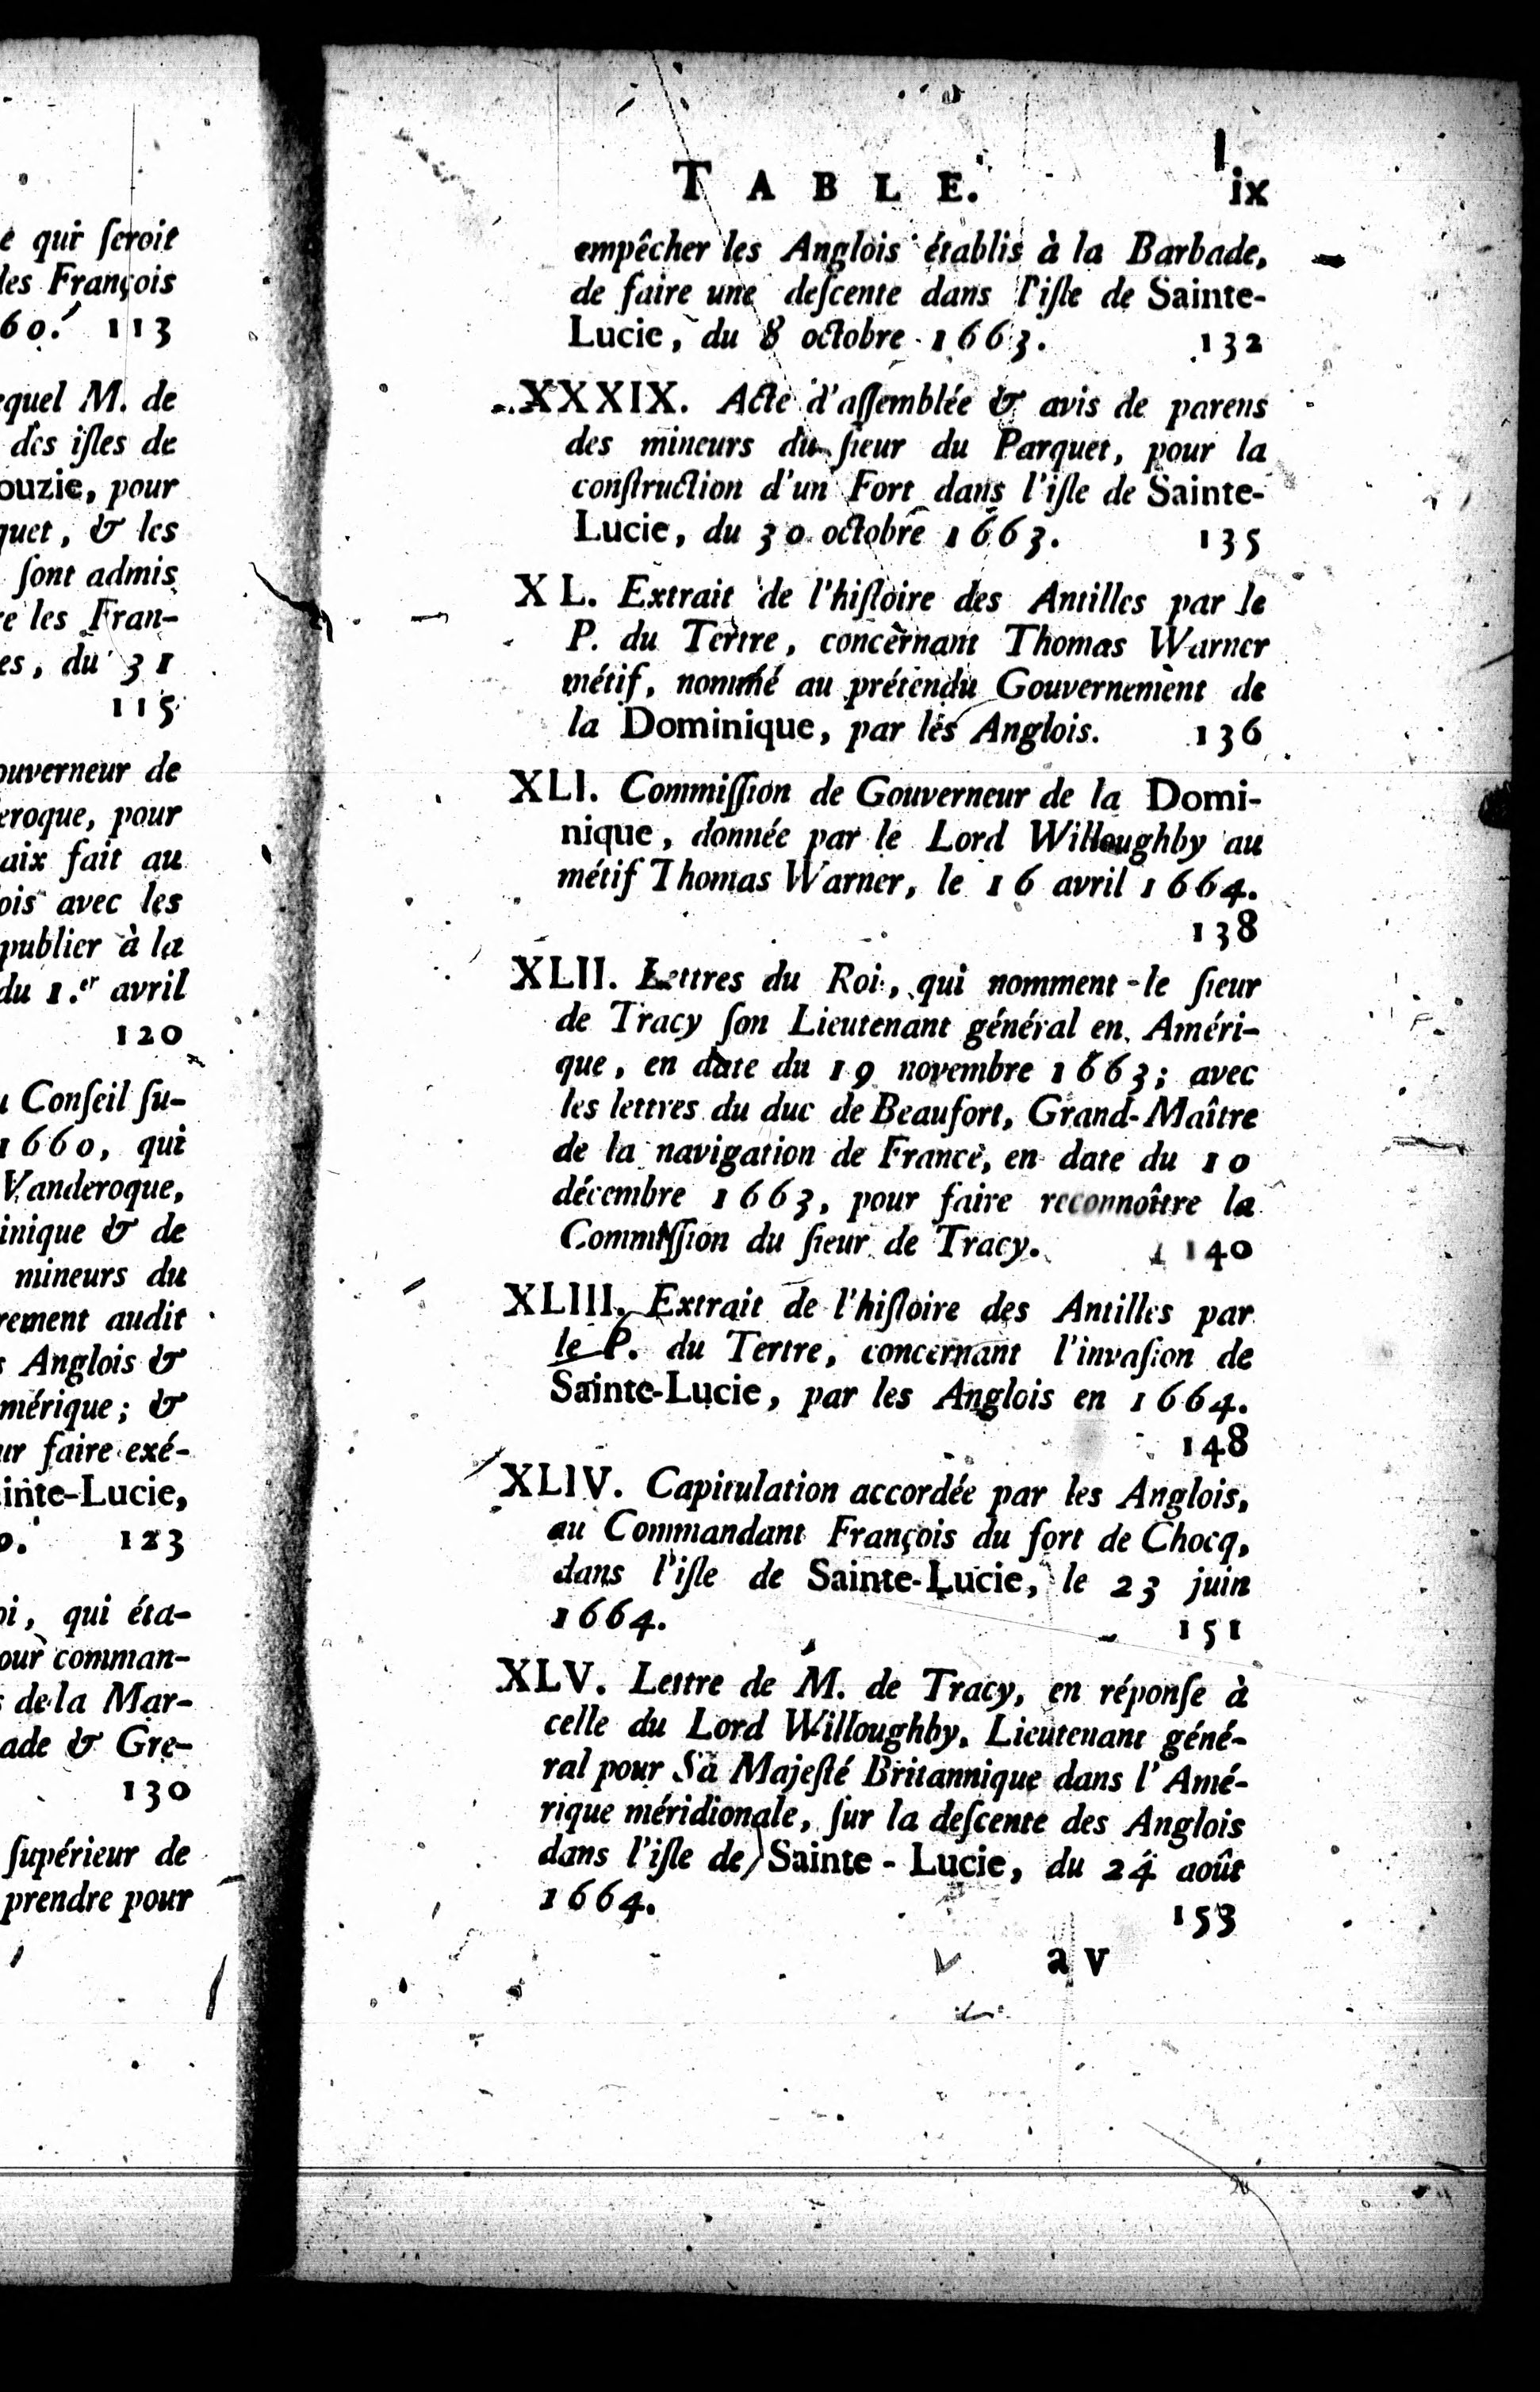 e qui ſeroit
les François
60. 113
equel M. de
des iſles de
ouzie, pour
quet, & les
ſont admis
re les Fran-
es, du 31
115
ouverneur de
eroque, pour
aix fait au
ois avec les
publier à la
du 1.er avril
120
u Conſeil ſu-
1660, qui
Vanderoque,
inique & de
mineurs du
rement audit
s Anglois &
mérique; &
ur faire exé-
inte-Lucie,
o. 123
oi, qui éta-
our comman-
s de la Mar-
ade & Gre-
130
ſupérieur de
prendre pour
TABLE. ix
empêcher les Anglois établis à la Barbade,
de faire une deſcente dans l'iſle de Sainte-
Lucie, du 8 octobre 1663. 132
XXXIX. Acte d'aſſemblée & avis de parens
des mineurs du ſieur du Parquet, pour la
conſtruction d'un Fort dans l'iſle de Sainte-
Lucie, du 30 octobre 1663. 135
XL. Extrait de l'hiſtoire des Antilles par le
P. du Tertre, concernant Thomas Warner
métif, nommé au prétendu Gouvernement de
la Dominique, par les Anglois. 136
XLI. Commiſſion de Gouverneur de la Domi-
nique, donnée par le Lord Willoughby au
métif Thomas Warner, le 16 avril 1664.
138
XLII. Lettres du Roi, qui nomment le ſieur
de Tracy ſon Lieutenant général en Améri-
que, en date du 19 novembre 1663; avec
les lettres du duc de Beaufort, Grand-Maître
de la navigation de France, en date du 10
décembre 1663, pour faire reconnoître la
Commiſſion du ſieur de Tracy. 140
XLIII. Extrait de l'hiſtoire des Antilles par
le P. du Tertre, concernant l'invaſion de
Sainte-Lucie, par les Anglois en 1664.
148
XLIV. Capitulation accordée par les Anglois,
au Commandant François du fort de Chocq,
dans l'iſle de Sainte-Lucie, le 23 juin
1664. 151
XLV. Lettre de M. de Tracy, en réponſe à
celle du Lord Willoughby, Lieutenant géné-
ral pour Sa Majeſté Britannique dans l'Amé-
rique méridionale, ſur la deſcente des Anglois
dans l'iſle de Sainte-Lucie, du 24 août
1664. 153
a v